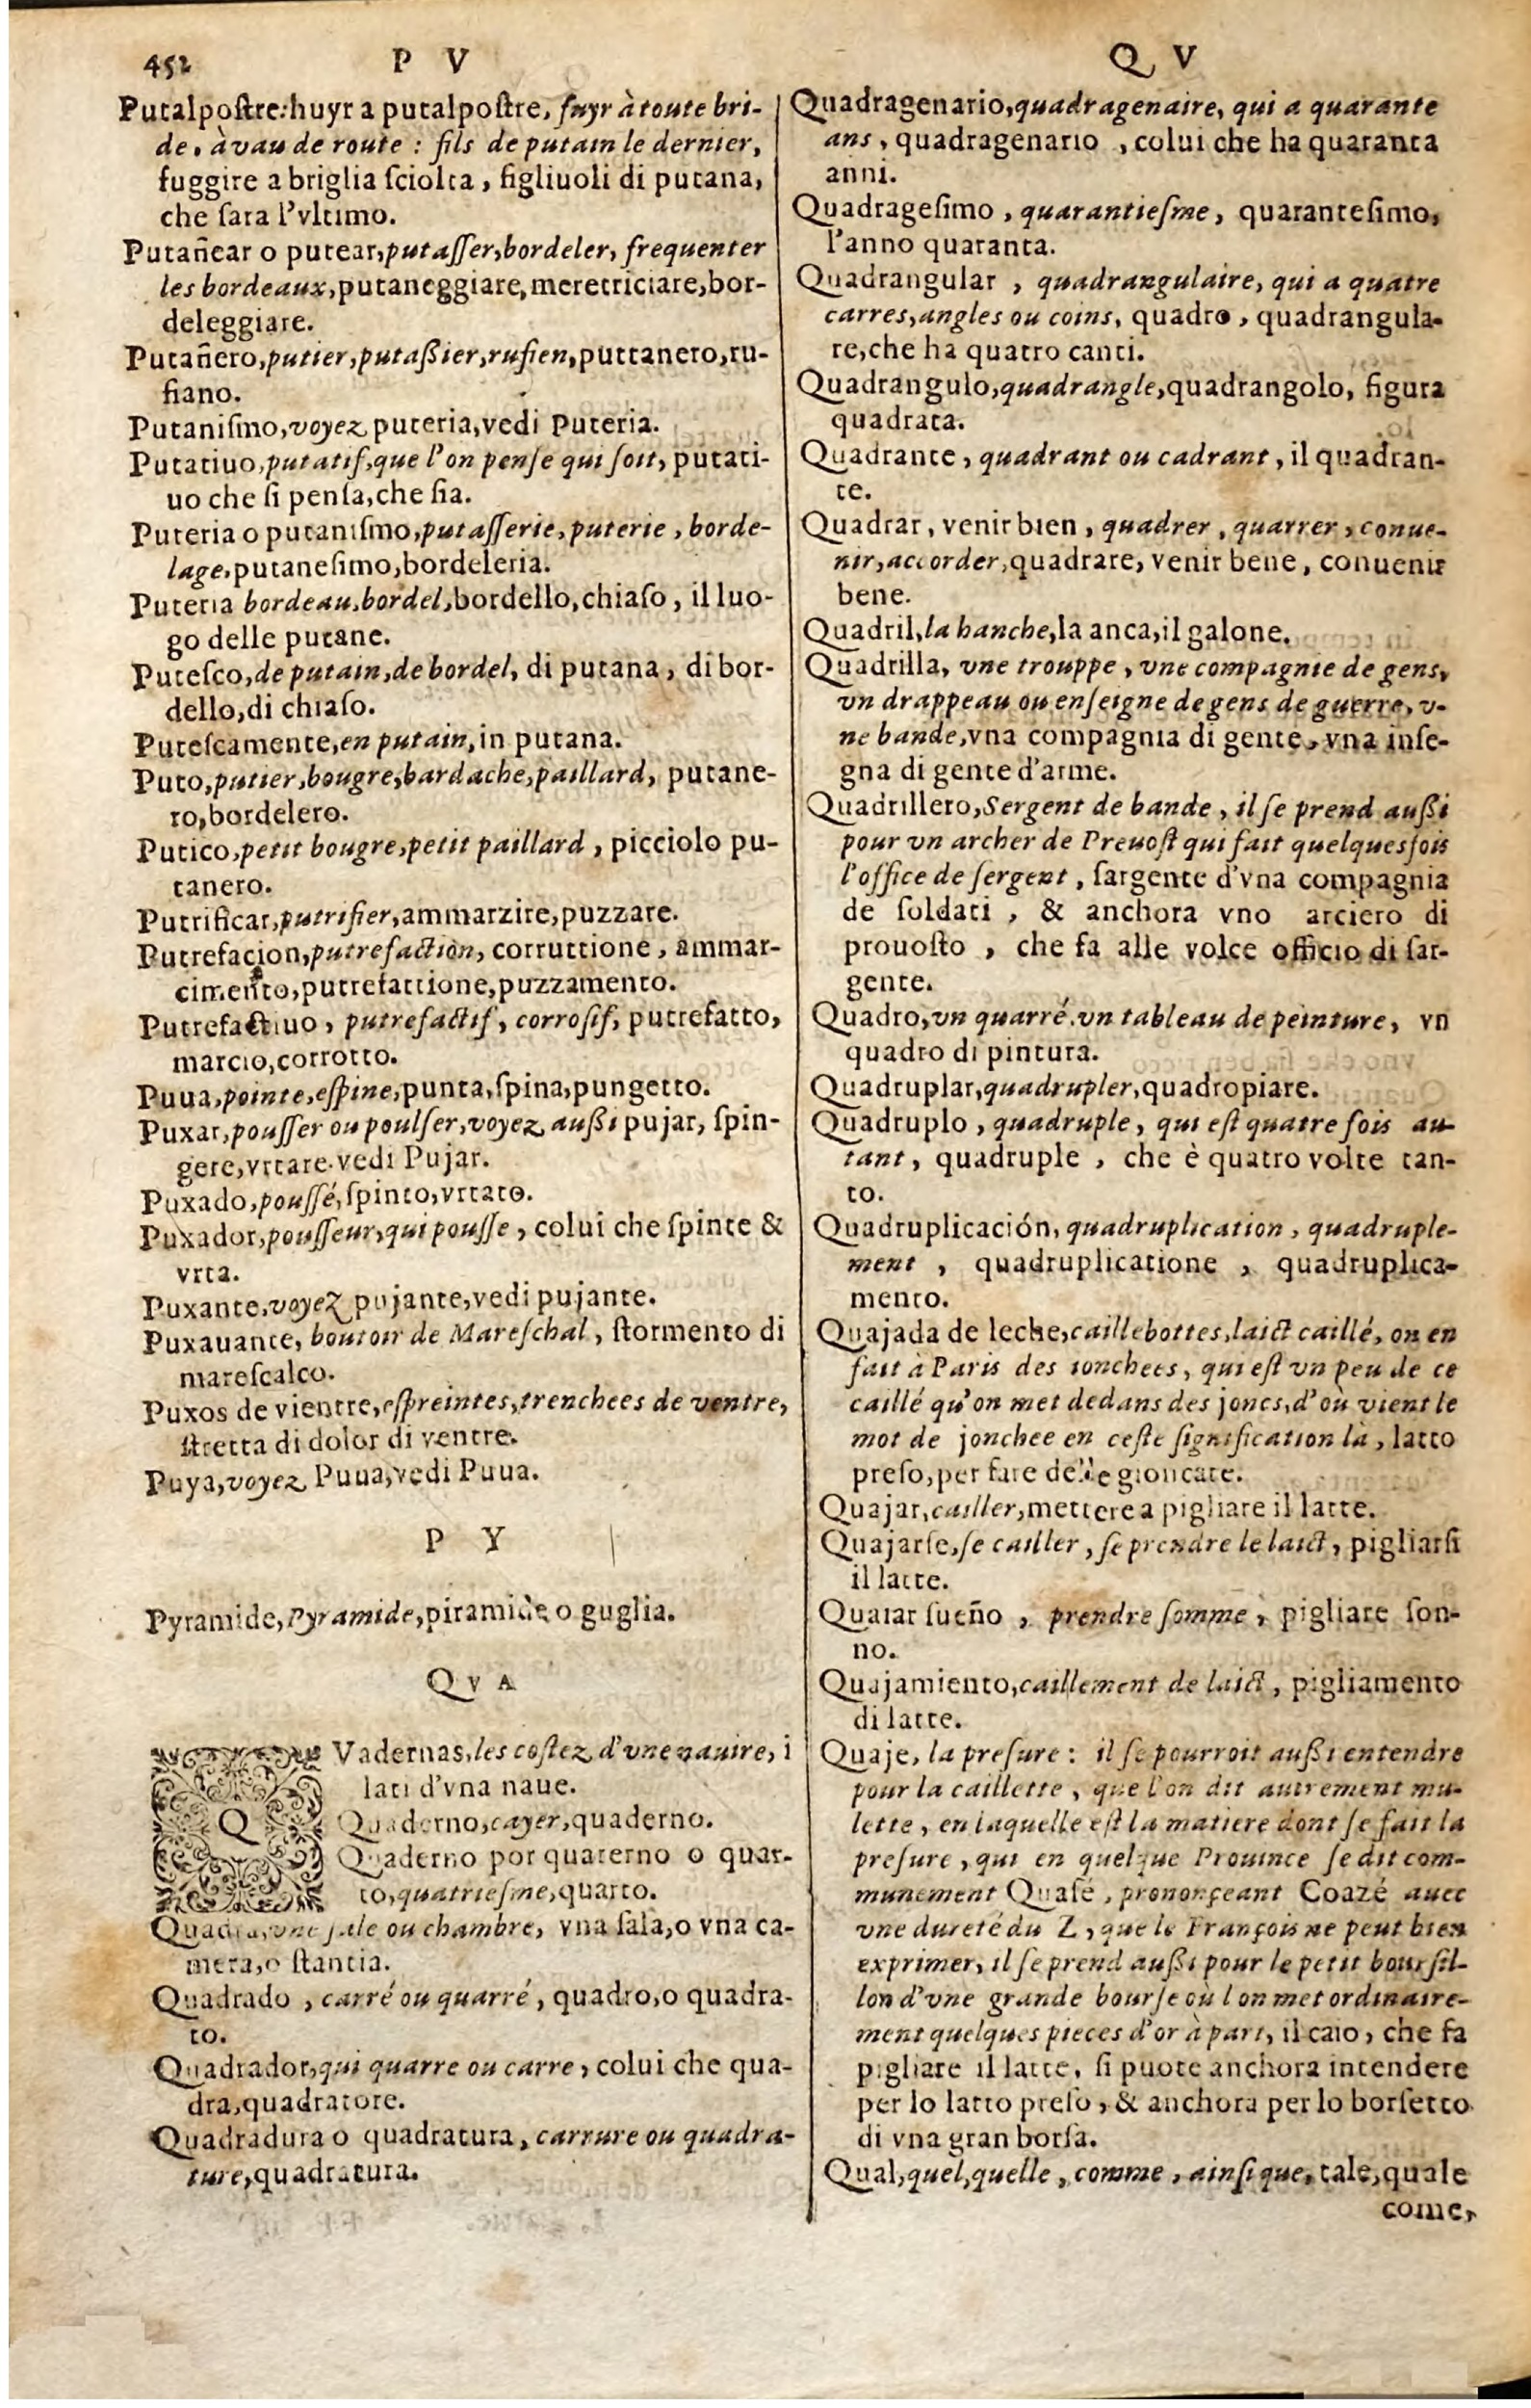 452 P V
Putalpoſtre: huyr a putalpoſtre, fuyr à toute bri-
de, à vau de route : fils de putain le dernier,
fuggire a briglia ſciolta, figliuoli di putana,
che ſara l'vltimo.
Putañear o putear, putaſſer, bordeler, frequenter
les bordeaux, putaneggiare, meretriciare, bor-
deleggiare.
Putañero, putier, putaßier, rufien, puttanero, ru-
fiano.
Putaniſmo, voyez puteria, vedi Puteria.
Putatiuo, putatif, que l'on penſe qui ſoit, putati-
uo che ſi penſa, che ſia.
Puteria o putaniſmo, putaſſerie, puterie, borde-
lage, putaneſimo, bordeleria.
Puteria bordeau, bordel, bordello, chiaſo, il luo-
go delle putane.
Puteſco, de putain, de bordel, di putana, di bor-
dello, di chiaſo.
Puteſcamente, en putain, in putana.
Puto, putier, bougre, bardache, paillard, putane-
ro, bordelero.
Putico, petit bougre, petit paillard, picciolo pu-
tanero.
Putrificar, putrifier, ammarzire, puzzare.
Putrefacion, putrefaction, corruttione, ammar-
cimento, putrefattione, puzzamento.
Putrefactiuo, putrefactif, corroſif, putrefatto,
marcio, corrotto.
Puua, pointe, eſpine, punta, ſpina, pungetto.
Puxar, pouſſer ou poulſer, voyez außi pujar, ſpin-
gere, vrtare. vedi Pujar.
Puxado, pouſſé, ſpinto, vrtato.
Puxador, pouſſeur, qui pouſſe, colui che ſpinte &
vrta.
Puxante, voyez pujante, vedi pujante.
Puxauante, boutoir de Mareſchal, ſtormento di
mareſcalco.
Puxos de vientre, eſpreintes, trenchees de ventre,
ſtretta di dolor di ventre.
Puya, voyez Puua, vedi Puua.
P Y
Pyramide, Pyramide, piramide o guglia.
Q V A
QVadernas, les coſtez d'vne nauire, i
lati d'vna naue.
Quaderno, cayer, quaderno.
Quaderno por quaterno o quar-
to, quatrieſme, quarto.
Quadra, vne ſale ou chambre, vna ſala, o vna ca-
mera, o ſtantia.
Quadrado, carré ou quarré, quadro, o quadra-
to.
Quadrador, qui quarre ou carre, colui che qua-
dra, quadratore.
Quadradura o quadratura, carrure ou quadra-
ture, quadratura.
Q V
Quadragenario, quadragenaire, qui a quarante
ans, quadragenario, colui che ha quaranta
anni.
Quadrageſimo, quarantieſme, quaranteſimo,
l'anno quaranta.
Quadrangular, quadrangulaire, qui a quatre
carres, angles ou coins, quadro, quadrangula-
re, che ha quatro canti.
Quadrangulo, quadrangle, quadrangolo, figura
quadrata.
Quadrante, quadrant ou cadrant, il quadran-
te.
Quadrar, venir bien, quadrer, quarrer, conue-
nir, accorder, quadrare, venir bene, conuenir
bene.
Quadril, la hanche, la anca, il galone.
Quadrilla, vne trouppe, vne compagnie de gens,
vn drappeau ou enſeigne de gens de guerre, v-
ne bande, vna compagnia di gente, vna inſe-
gna di gente d'arme.
Quadrillero, Sergent de bande, il ſe prend außi
pour vn archer de Preuoſt qui fait quelquesfois
l'office de ſergent, ſargente d'vna compagnia
de ſoldati, & anchora vno arciero di
prouoſto, che fa alle volte officio di ſar-
gente.
Quadro, vn quarré, vn tableau de peinture, vn
quadro di pintura.
Quadruplar, quadrupler, quadropiare.
Quadruplo, quadruple, qui eſt quatre fois au-
tant, quadruple, che è quatro volte tan-
to.
Quadruplicación, quadruplication, quadruple-
ment, quadruplicatione, quadruplica-
mento.
Quajada de leche, caillebottes, laict caillé, on en
fait à Paris des ionchees, qui eſt vn peu de ce
caillé qu'on met dedans des joncs, d'où vient le
mot de jonchee en ceſte ſignification là, latto
preſo, per fare delle gioncate.
Quajar, cailler, mettere a pigliare il latte.
Quajarſe, ſe cailler, ſe prendre le laict, pigliarſi
il latte.
Quaiar ſueño, prendre ſomme, pigliare ſon-
no.
Quajamiento, caillement de laict, pigliamento
di latte.
Quaje, la preſure : il ſe pourroit außi entendre
pour la caillette, que l'on dit autrement mu-
lette, en laquelle eſt la matiere dont ſe fait la
preſure, qui en quelque Prouince ſe dit com-
munement Quaſé, prononçeant Coazé auec
vne dureté du Z, que le François ne peut bien
exprimer, il ſe prend außi pour le petit bourſil-
lon d'vne grande bourſe où l'on met ordinaire-
ment quelques pieces d'or à part, il caio, che fa
pigliare il latte, ſi puote anchora intendere
per lo latto preſo, & anchora per lo borſetto
di vna gran borſa.
Qual, quel, quelle, comme, ainſi que, tale, quale
come,